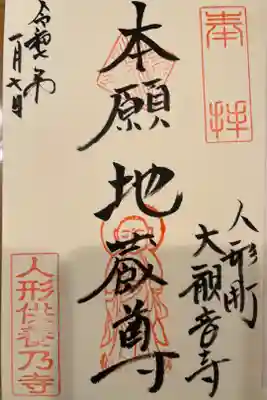 奉拝
人形町
大観音寺
本願地蔵尊
一月七日
人形供養乃寺